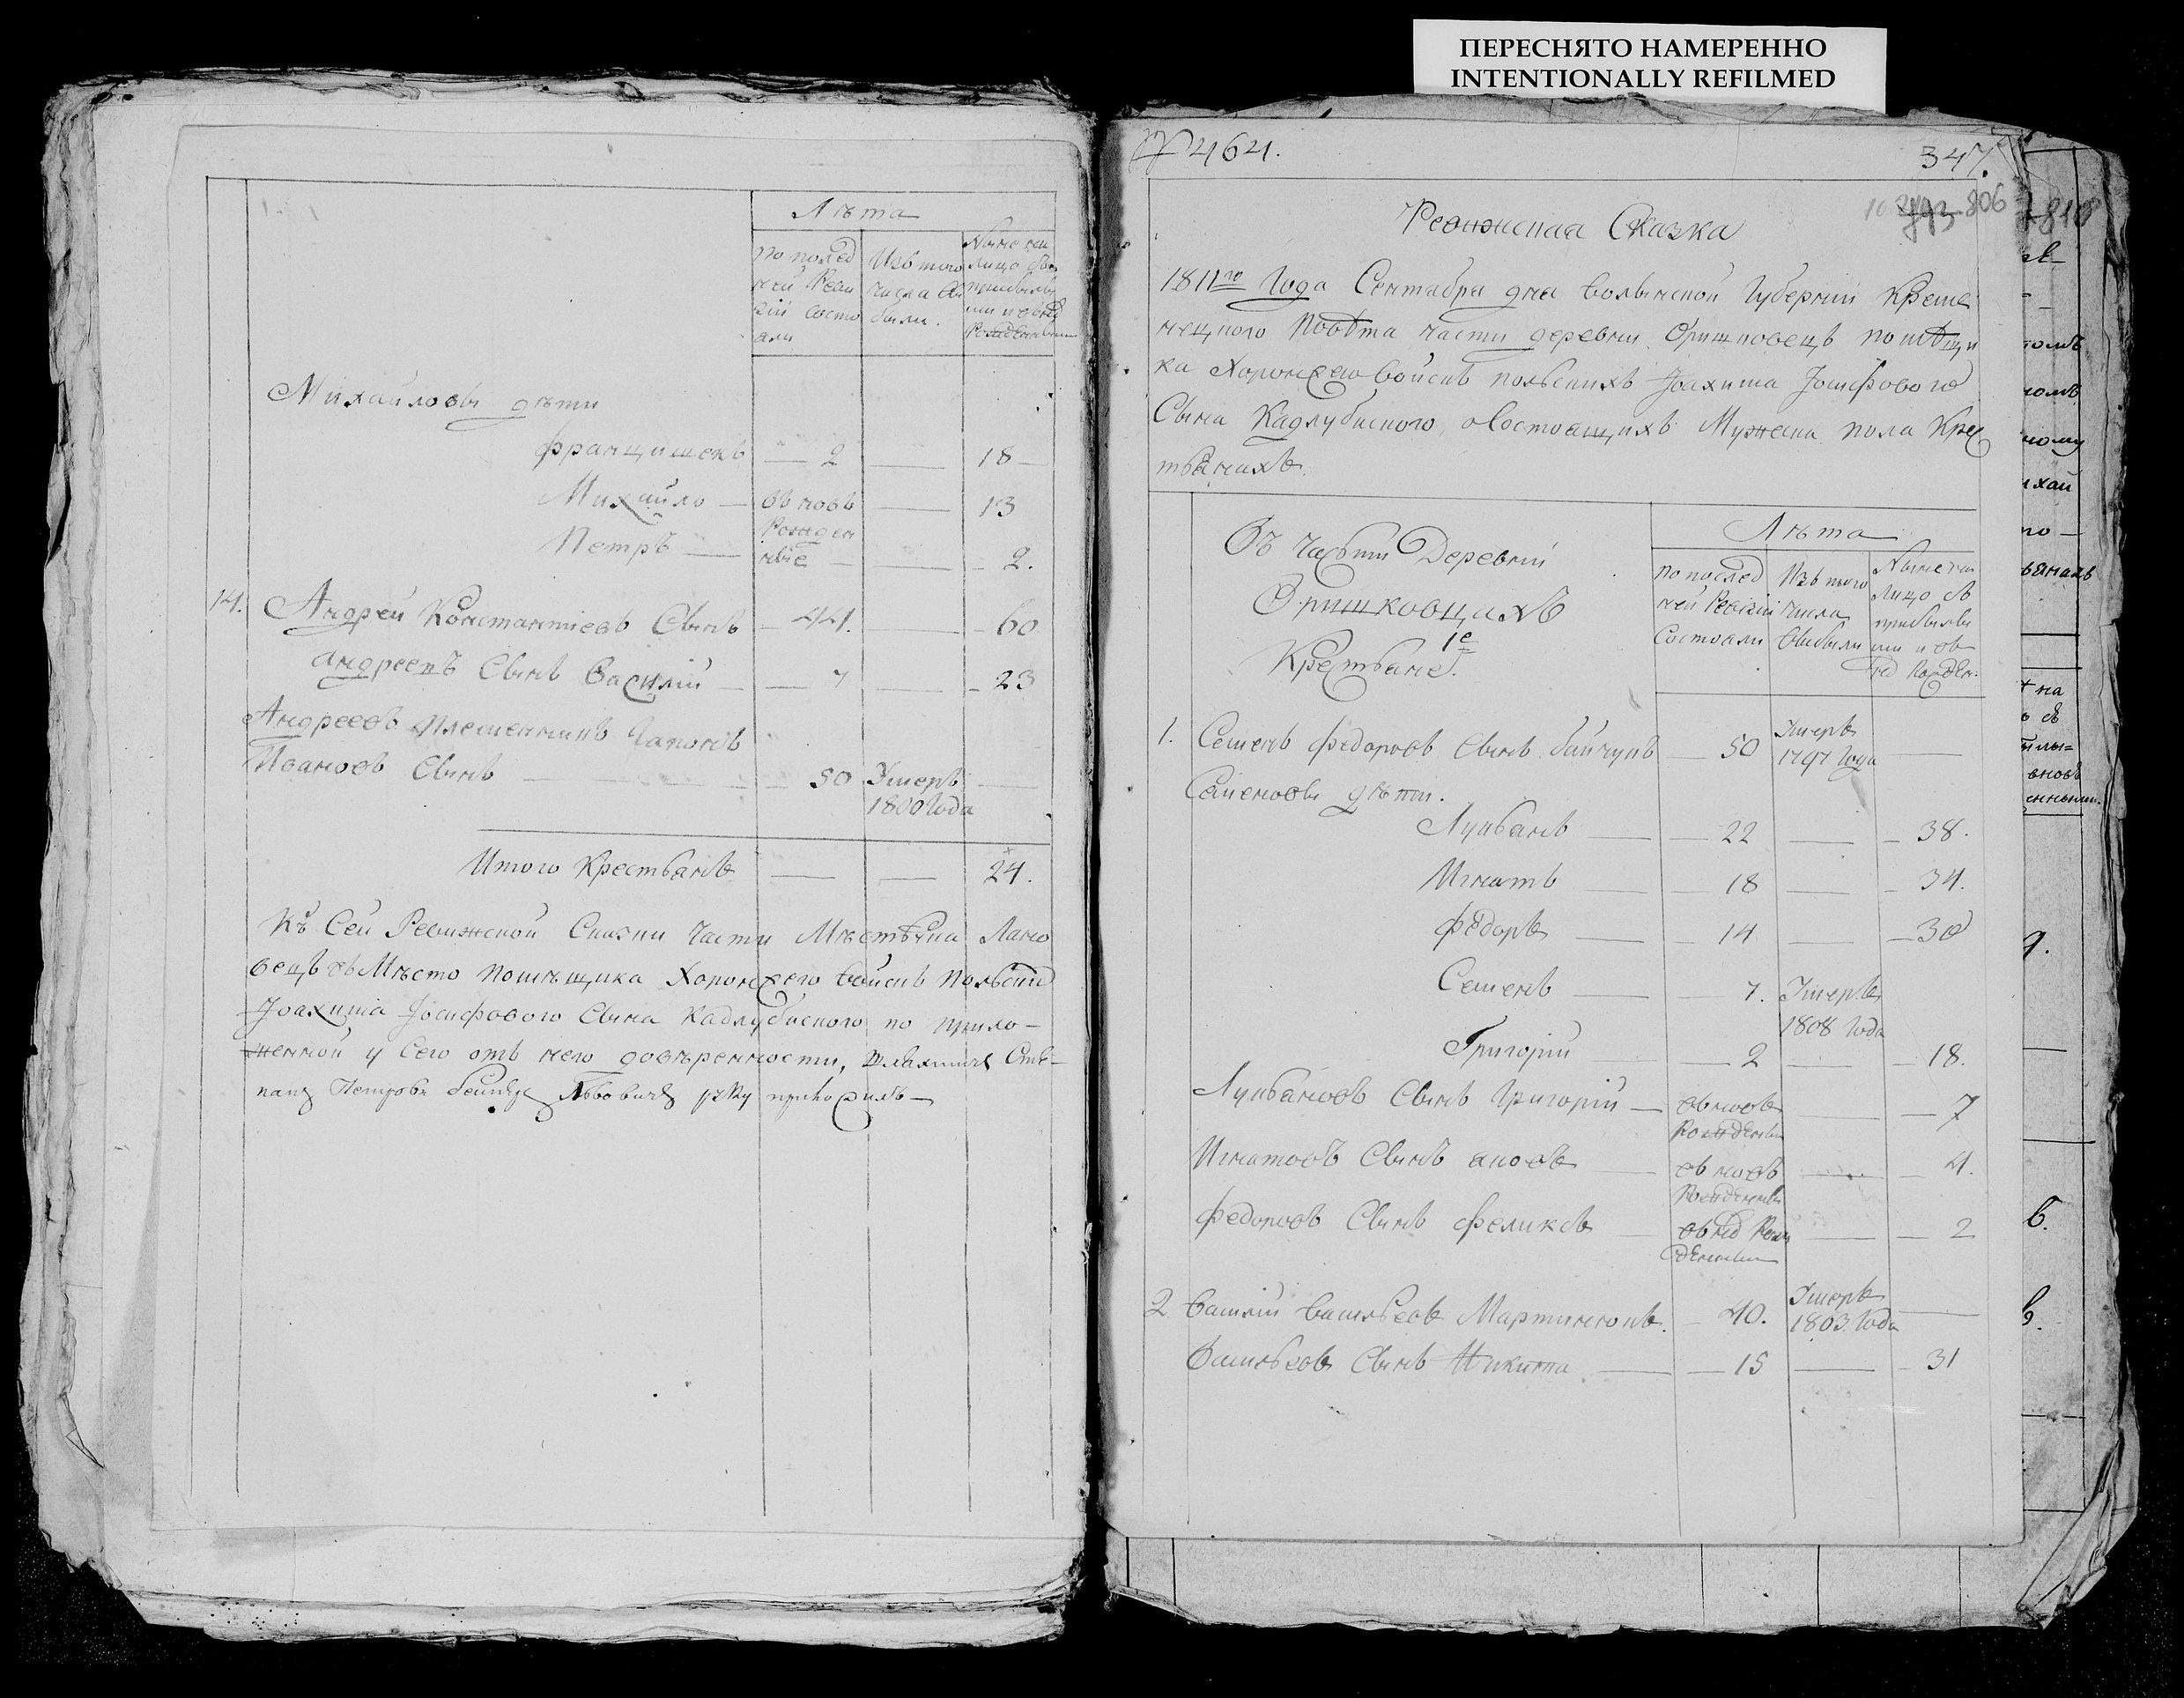 ПЕРЕСНЯТО НАМЕРЕННО
INTENTIONALLY REFILMED
Лѣта
по послѣд
ней Реви
зіи состо
али
Изъ того
числа вы
были.
Ныне на
лицо съ
прибылы
ми и вновь
Рожденными
Михайловы дѣти
Францишекъ — 2 — 18 —
Михайло — въ новъ — 13
Рожден
Петръ — ные — 2.
14. Андрей Константіевъ Сынъ — 44. — 60
Андреевъ Сынъ Василій — 7 — 23
Андреевъ племенникъ
Ивановъ Сынъ — 50 Умеръ —
1800 Года
Итого Крестьянъ — — 24.
Къ Сей Ревижской Сказки части Мѣстечка Лано
вецъ въ Мѣсто помѣщика Хоронжего войскъ польскихъ
Іоахима Іосифового Сына Кадлубиского по прило-
женной у Сего отъ него довѣренности, шляхтичъ Сте-
панъ Петровъ Львовичъ руку приложилъ —
№ 464.
347.
793 806
Ревижская Сказка
1811го Года Сентября дня Волынской Губерніи Креме
нецкого Повѣта части деревни Оришковецъ помѣщи
ка Хоронжего войскъ польскихъ Іоахима Іосифового
Сына Кадлубиского, о Состоящихъ Мужеска пола Крес
тьянахъ.
Въ части Деревни
Оришковцахъ
1е
Крестьяне.
Лѣта
по послѣд
ней Ревізіи
Состояли
Изъ того
числа
выбыли
Ныне на
лицо съ
прибылы
ми и въ
1. Семенъ Федоровъ Сынъ Байчукъ — 50 Умеръ —
1797 Года
Семеновы дѣти.
Лукьянъ — 22 — 38.
Игнатъ — 18 — 34.
Федоръ — 14 — 30
Семенъ — 7. Умеръ
1808 Года
Григорій — 2 — 18.
Лукьяновъ Сынъ Григорій — въ новъ — 7
Рожденны
Игнатовъ Сынъ Яковъ — въ новъ — 4.
Рожденны
Федоровъ Сынъ Феликсъ — — 2
2 Василій Васильевъ Мартинюкъ. — 40. Умеръ —
1803 Года
Васильевъ Сынъ Никита — 15 — 31